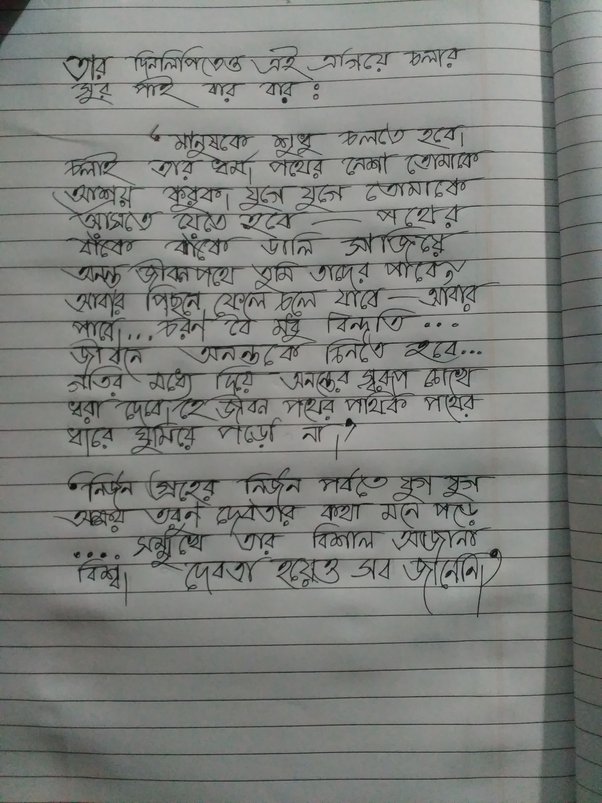 তার দিনলিপিতেও এই এগিয়ে চলার
সুর পাই বার বার :
“মানুষকে শুধু চলতে হবে।
চলাই তার ধর্ম। পথের নেশা তোমাকে
আশ্রয় করুক। যুগে যুগে তোমাকে
আসতে যেতে হবে — পথের
বাঁকে বাঁকে ডালি সাজিয়ে
অনন্ত জীবনপথে তুমি তাদের পাবে,
আবার পিছনে ফেলে চলে যাবে — আবার
পাবে।... চরণ বৈ মধু বিন্দতি ...
জীবনে অনন্তকে চিনতে হবে...
গতির মধ্যে দিয়ে অনন্তের স্বরূপ চোখে
ধরা দেবে। হে জীবন পথের পথিক পথের
ধারে ঘুমিয়ে পড়ো না।”
“নির্জন গ্রহের নির্জন পর্বতে যুগ যুগ
অক্ষয় তরুণ দেবতার কথা মনে পড়ে
.... সম্মুখে তার বিশাল অজানা
বিশ্ব। দেবতা হয়েও সব জানেনি।”